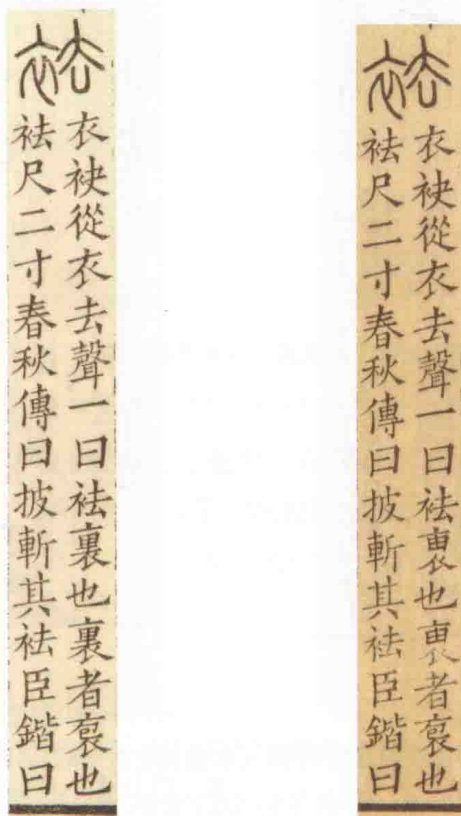 袪
衣袂從衣去聲一曰袪裏也裏者裒也
袪尺二寸春秋傳曰披斬其袪臣鍇曰
袪
衣袂從衣去聲一曰袪也者裒也
袪尺二寸春秋傳曰披斬其袪臣鍇曰